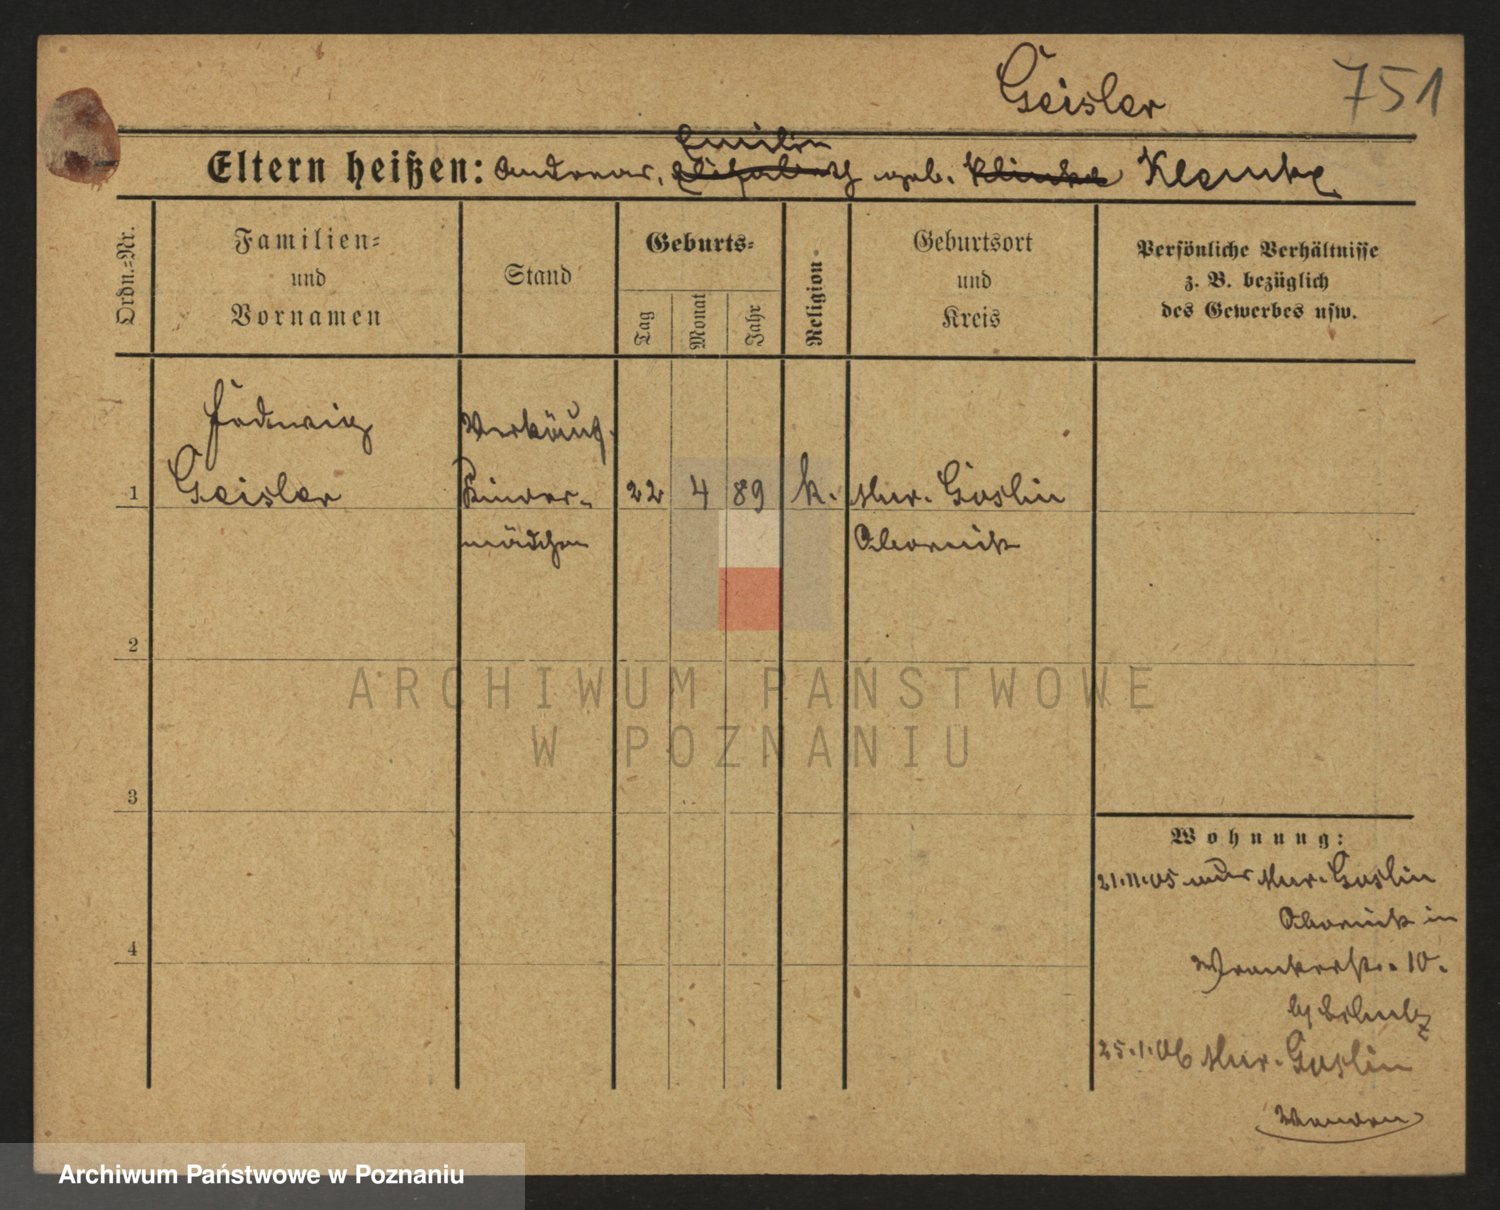 Geisler 751
Emilie
Eltern heißen: Andreas, Elisabeth geb. Klinke Klemke
Ordn.-Nr.
Familien-
und
Vornamen
Stand
Geburts-
Tag
Monat
Jahr
Religion
Geburtsort
und
Kreis
Persönliche Verhältnisse
z. B. bezüglich
des Gewerbes usw.
Hedwig
Geisler
Verkäuf.
Kinder-
mädchen
1
22 4 89 k. Mur. Goslin
Obornik
2
3
4
Wohnung:
21.11.05 aus Mur. Goslin
Obornik in
Wronkerstr. 10.
b/ Schulz
25.1.06 Mur. Goslin
ARCHIWUM PAŃSTWOWE
W POZNANIU
Archiwum Państwowe w Poznaniu